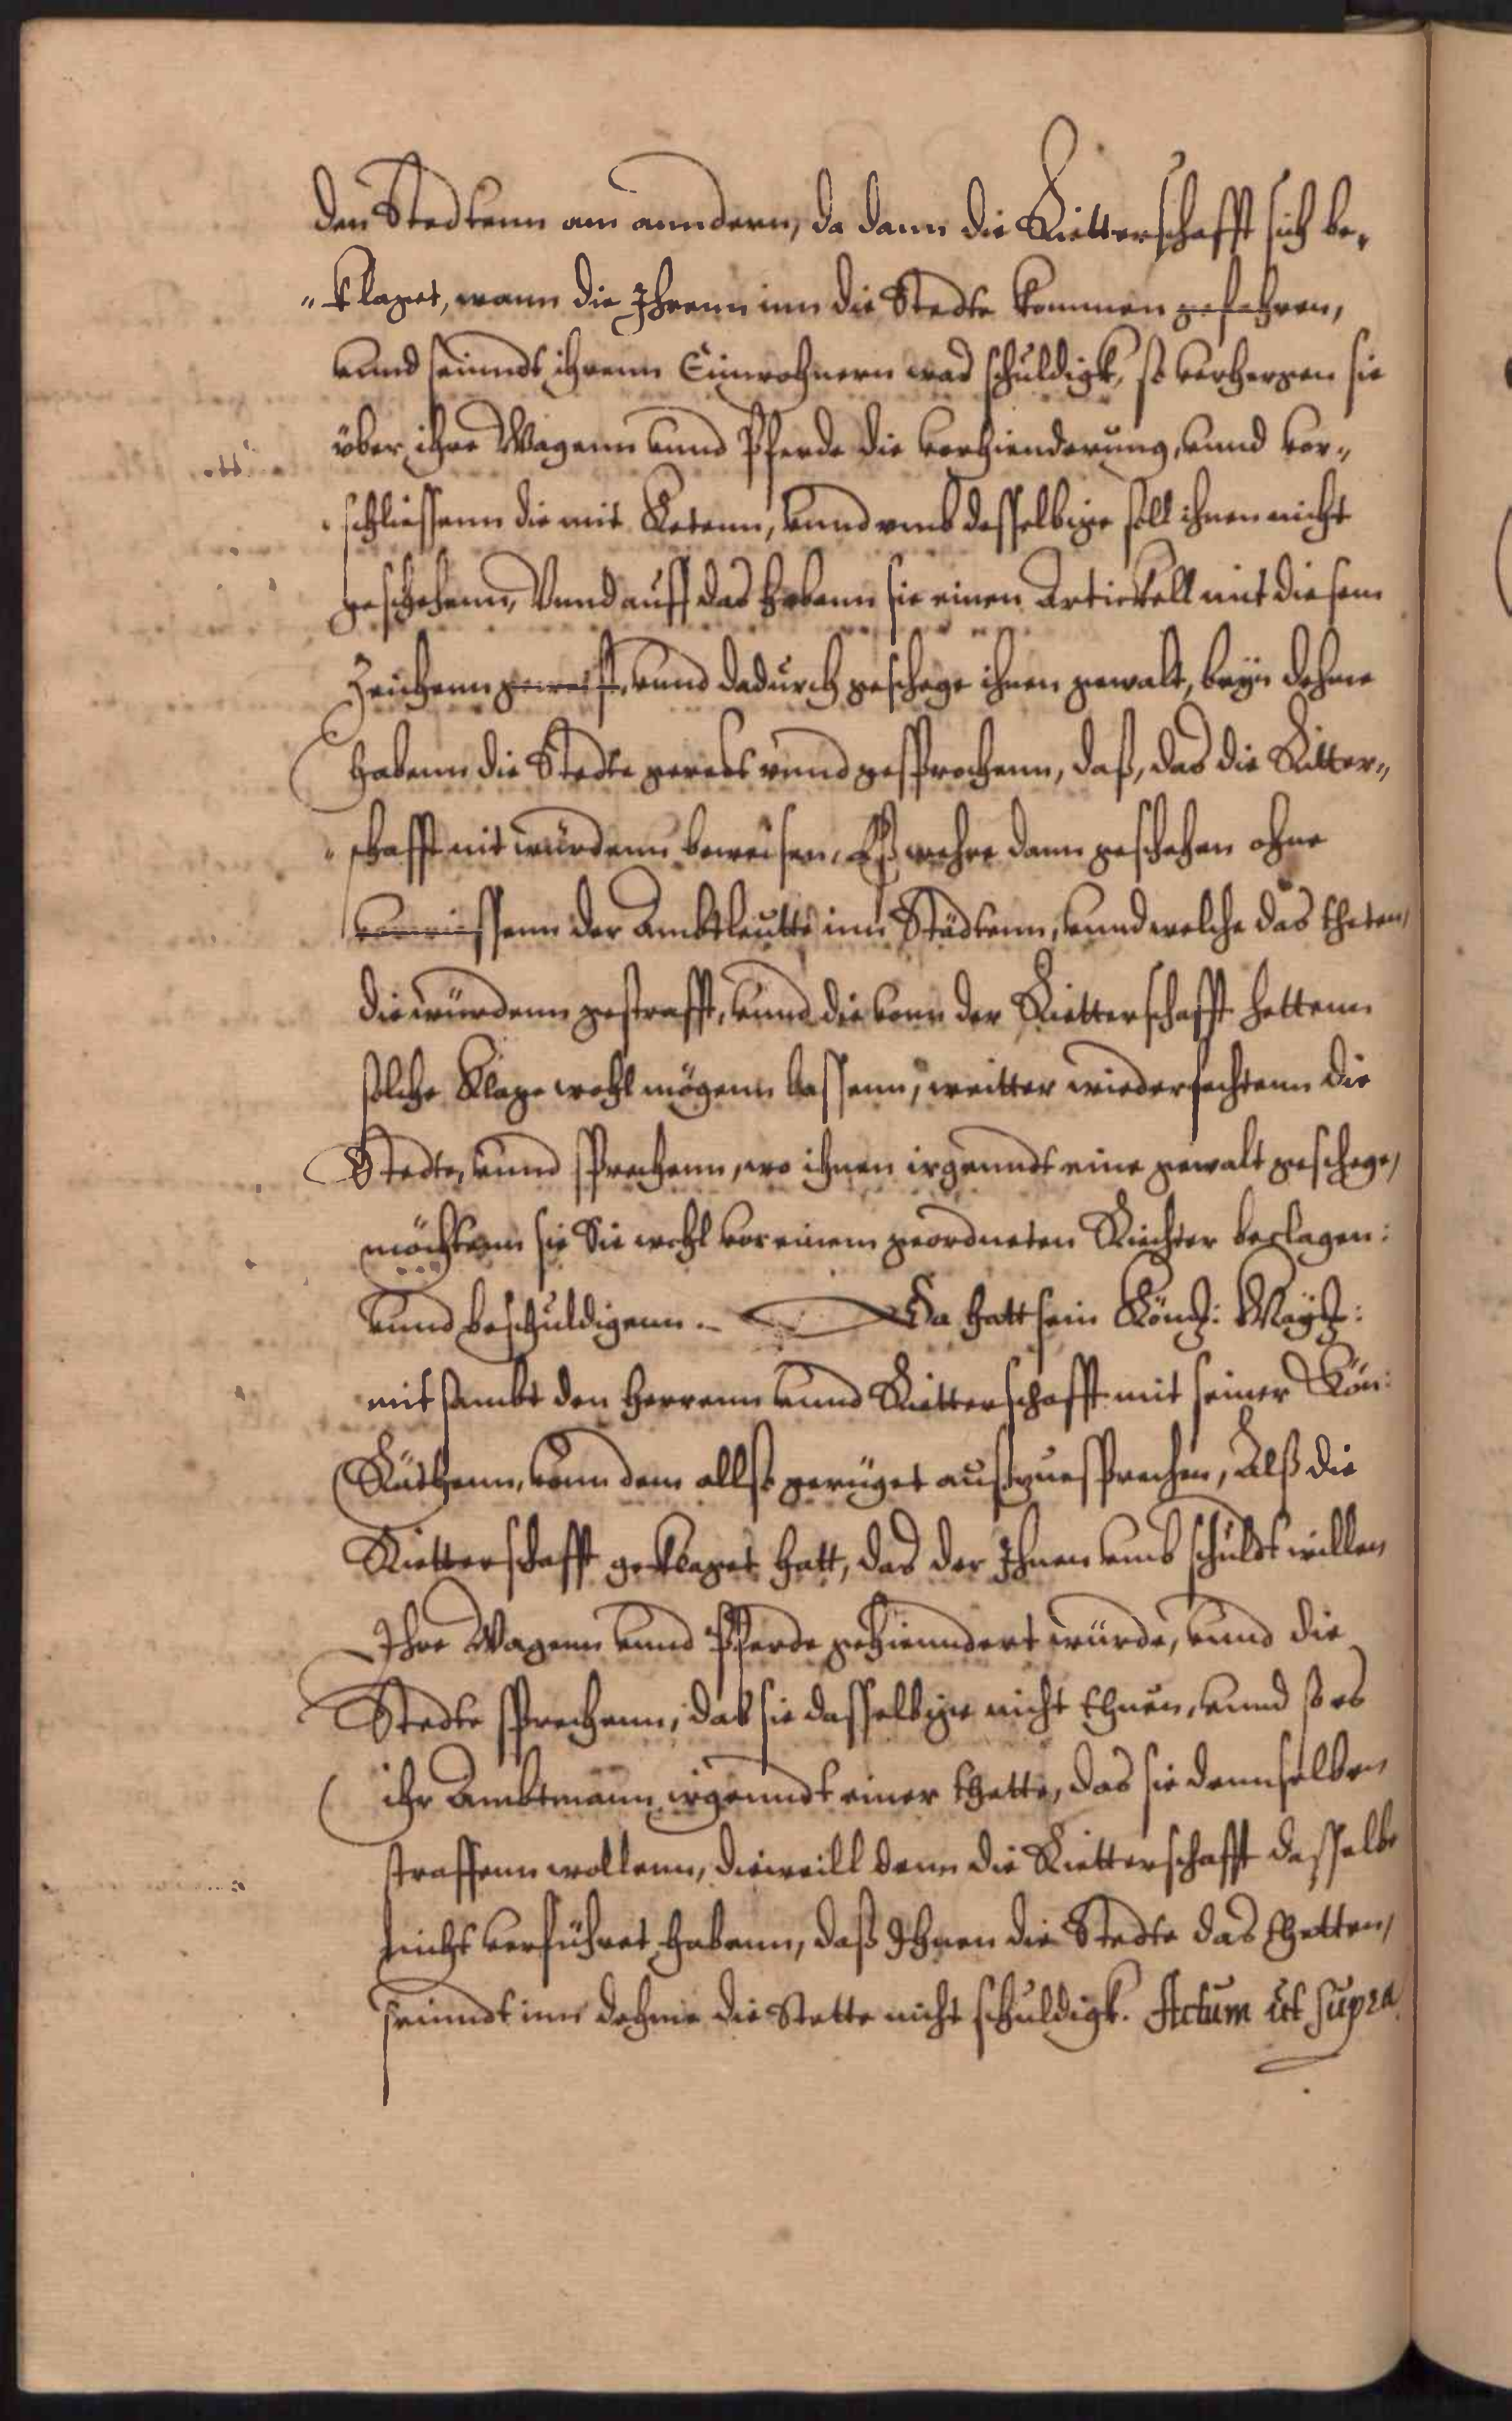 den Stedtenn am anndern, da dann die Ritterschafft sich be¬
"klaget, wann die Ihrenn inn die Stedte kommen gefahren,
vnnd seinndt ihrenn Einwohnern was schuldigk, so verhengen sie
über ihre Wagenn vnnd Pferde die verhienderung, vnnd ver¬
schliessenn die mit Ketenn, vnnd vmb desselbige soll ihnen nicht
geschehenn, Vnnd auff das habenn sie einen Artickell mit diesem
Zeichenn geweist, vnnd dadurch geschege ihnen gewalt, beyn dehme
habenn die Stedte geredt vnnd gesprochenn, daß, das die Ritter¬
schafft nit würdenn beweisen, Eß wehre dann geschehen ohne
vorwissenn der Ambtleutte inn Städtenn, vnnd welche das theten,
die würdenn gestrafft, vnnd die vonn der Ritterschafft hettenn
solche Klage wohl mögenn lassenn, weitter wiederfechtenn die
Stedte, vnnd sprechenn, wo ihnen irgenndt eine gewalt geschege,
möchtenn sie Sie wohl vor einem geordneten Riechter beclagen:
vnnd beschuldigenn. Da hatt sein Köng: Mayt:
mit sambt den Herrenn vnnd Ritterschafft mit seiner Kön:
Räthenn, vonn dem allß gerüget außzuesprechen, Alß die
Ritterschafft geklaget hatt, das der Ihnen vmb schuldt willen
Ihre Wagenn vnnd Pferde gehienndert würde, vnnd die
Stedte sprechenn, das sie dasselbige nicht thuen, vnnd so es
ihr Ambtmann irgenndt einer thette, das sie dennselben
straffenn wollenn, dieweill denn die Ritterschafft dasselbe
nicht verführet habenn, daß Ihnen die Stedte das thetten,
seinndt inn dehme die Stette nicht schuldigk. Actum ut supra.